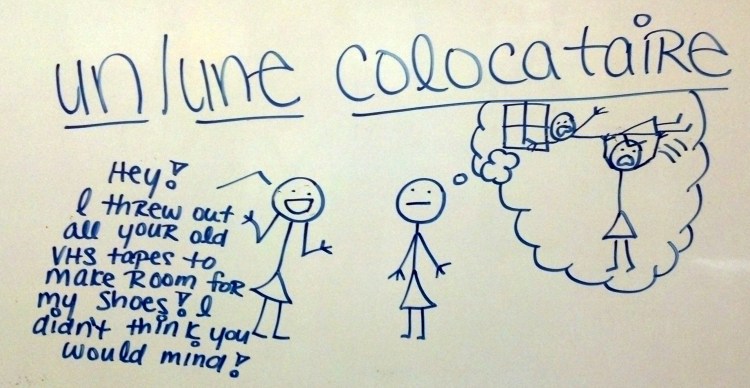 un/une colocataire
Hey!
I threw out
all your old
VHS tapes to
make room for
my shoes! I
didn't think you
would mind!